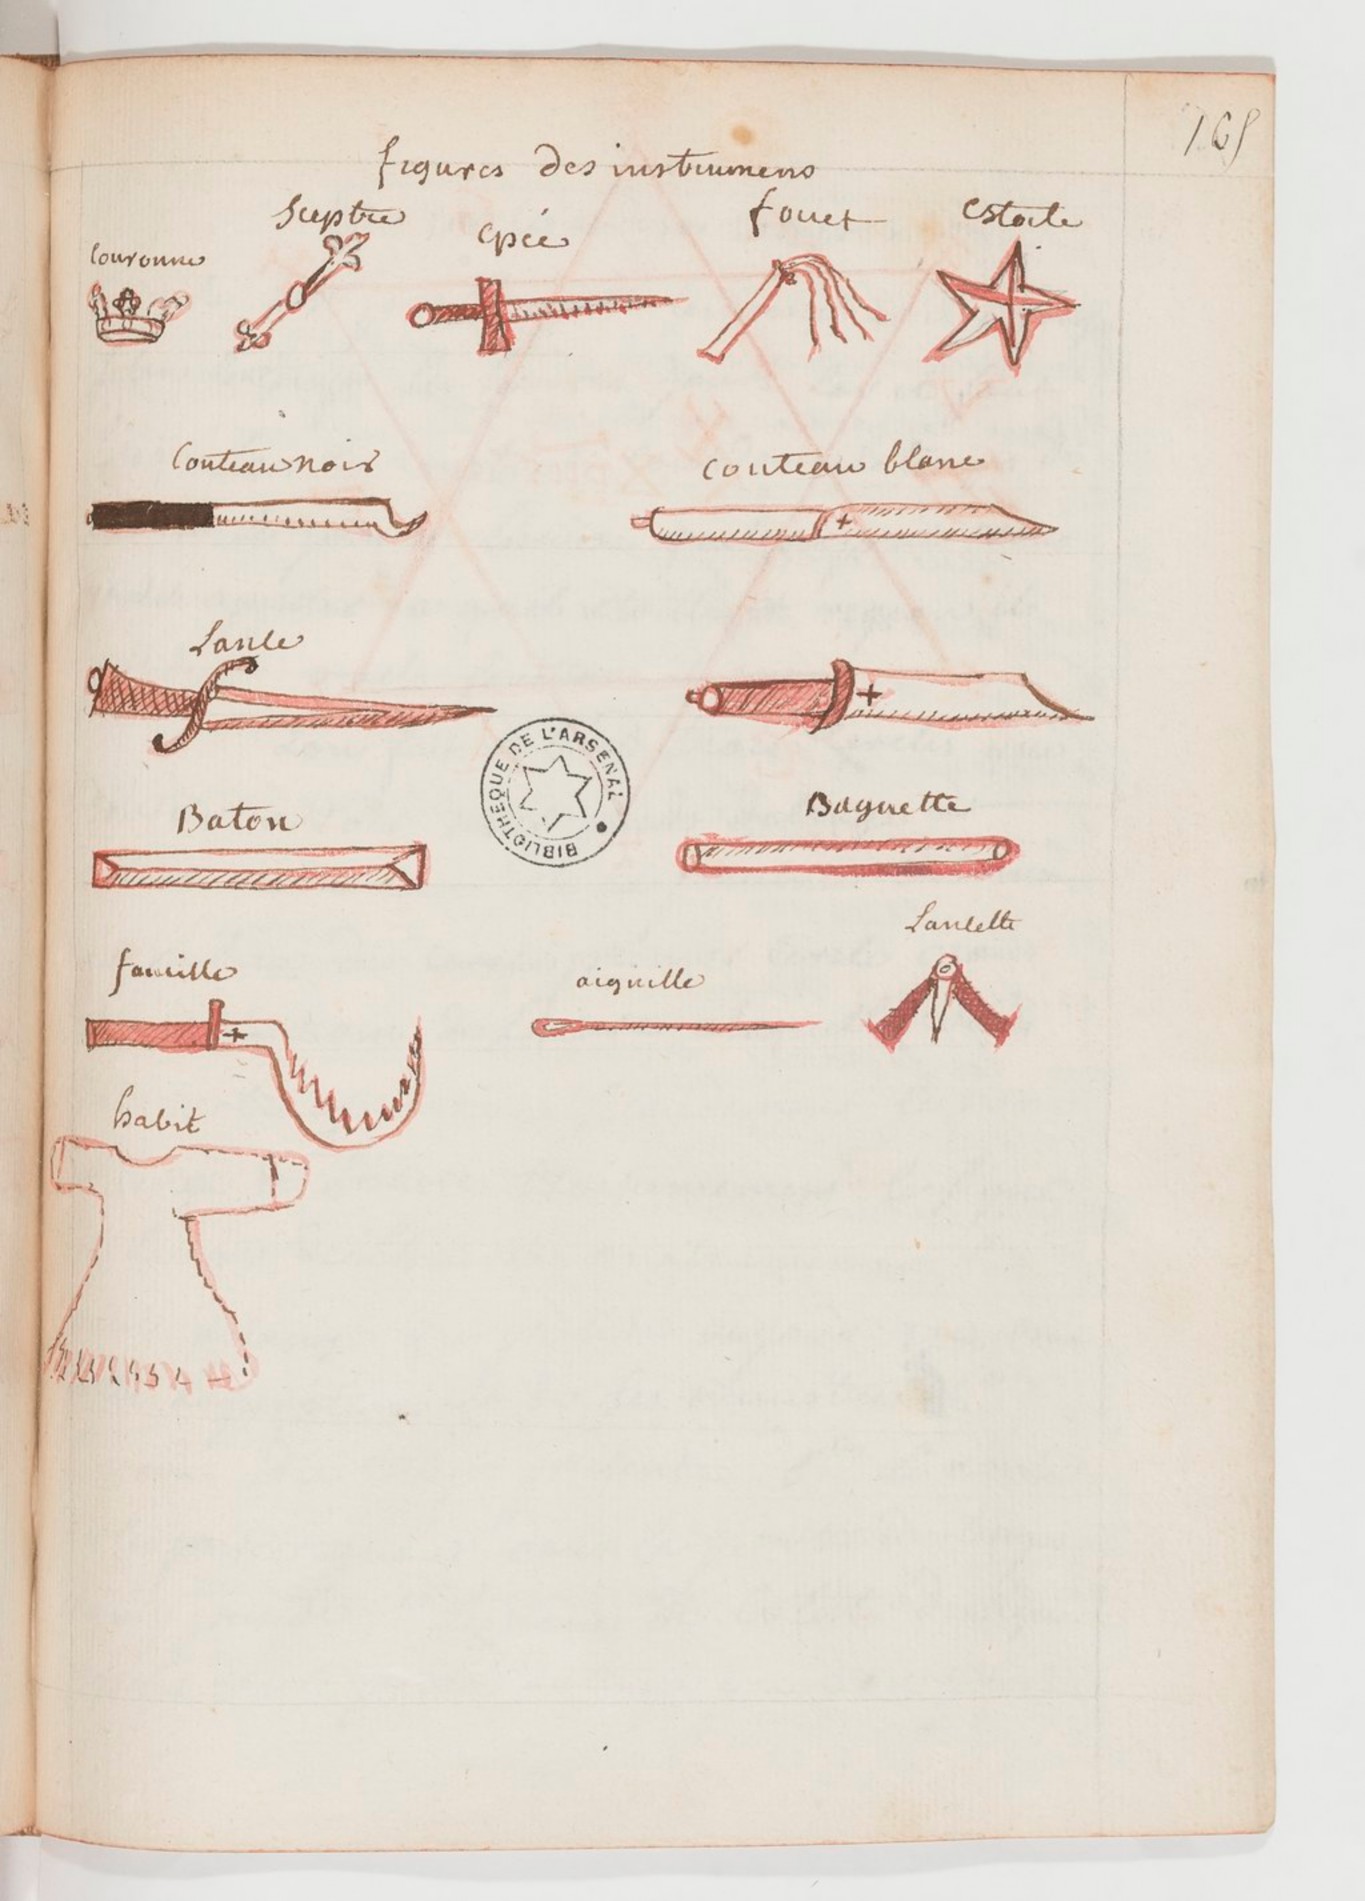 165
figures des instrumens
Couronne
Sceptre
epée
fouet
Estoile
Couteau noir
Couteau blanc
Lance
BIBLIOTHEQUE DE L'ARSENAL
Baton
Baguette
Lancette
faucille
aiguille
habit